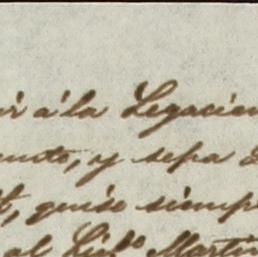 ir á la Legacion
ento, y sepa
quiso siemp
al Lic.do Martin